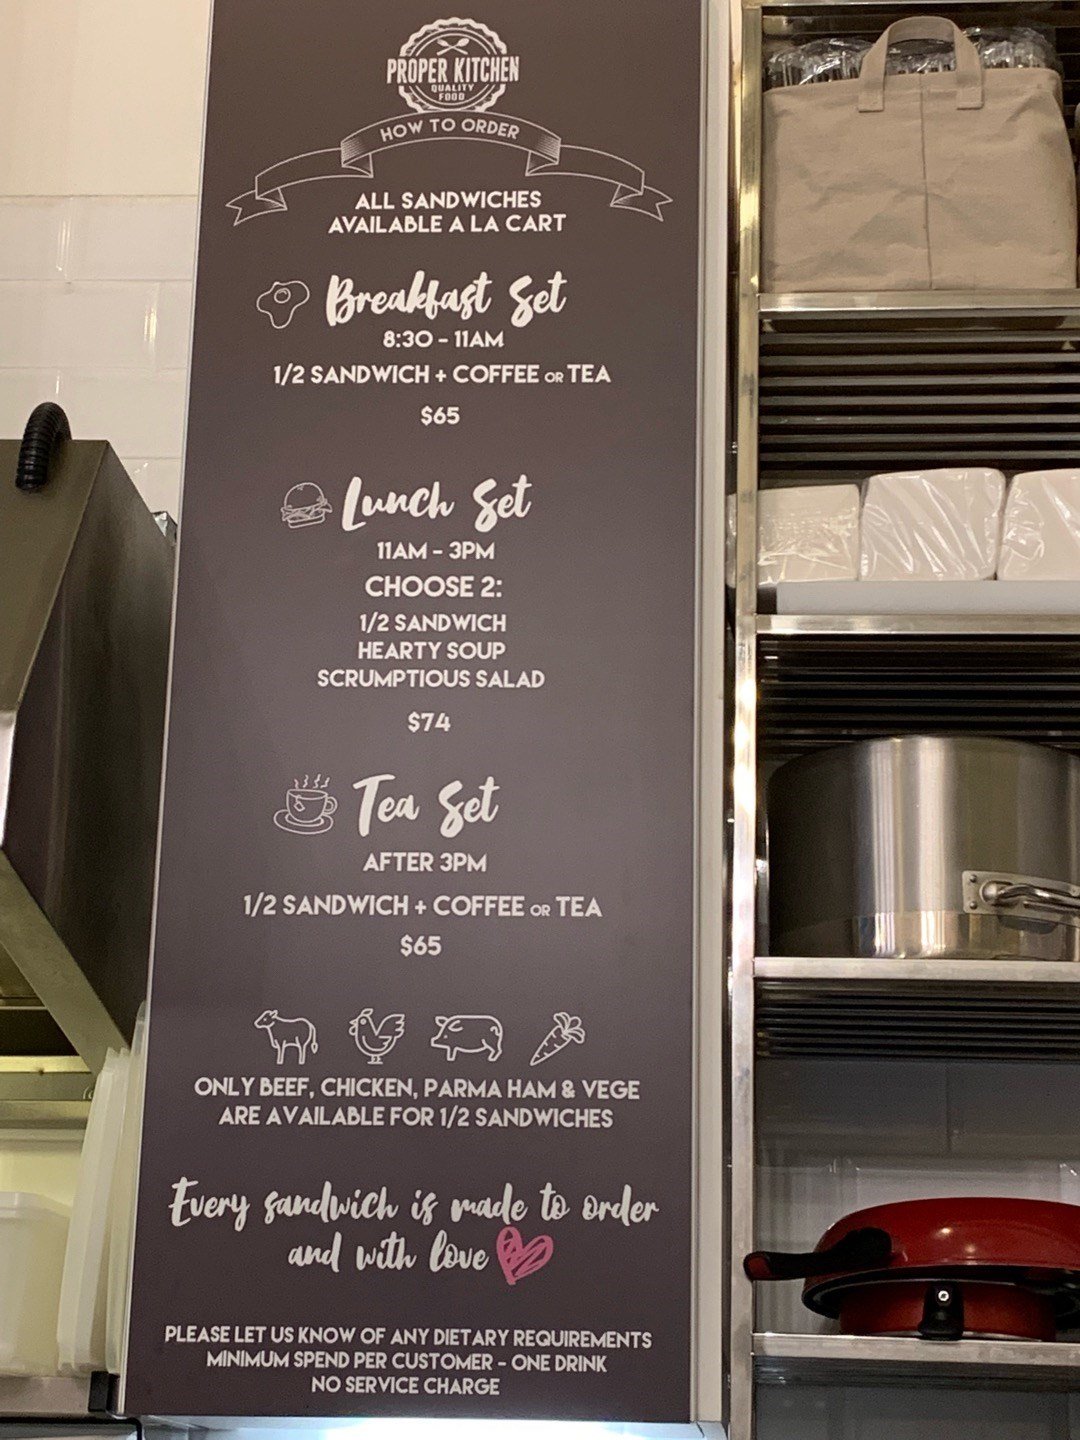 PROPER KITCHEN
QUALITY
FOOD
HOW TO ORDER
ALL SANDWICHES
AVAILABLE A LA CART
Breakfast Set
8:30 - 11AM
1/2 SANDWICH + COFFEE OR TEA
$65
Lunch Set
11AM - 3PM
CHOOSE 2:
1/2 SANDWICH
HEARTY SOUP
SCRUMPTIOUS SALAD
$74
Tea Set
AFTER 3PM
1/2 SANDWICH + COFFEE OR TEA
$65
ONLY BEEF, CHICKEN, PARMA HAM & VEGE
ARE AVAILABLE FOR 1/2 SANDWICHES
Every sandwich is made to order
and with love
PLEASE LET US KNOW OF ANY DIETARY REQUIREMENTS
MINIMUM SPEND PER CUSTOMER - ONE DRINK
NO SERVICE CHARGE